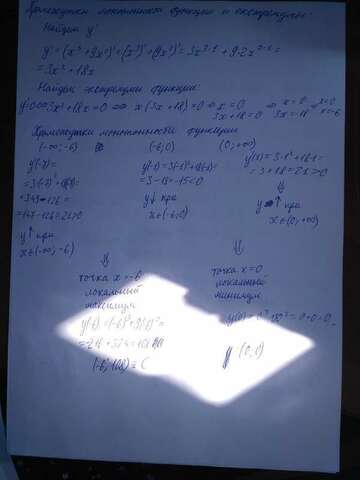 Промежутки монотонности функции и экстремумы:
Найдём y'
y' = (x³ + 9x²)' = (x³)' + (9x²)' = 3x³⁻¹ + 9·2x²⁻¹ =
= 3x² + 18x
Найдём экстремумы функции:
y' = 0 ⇔ 3x² + 18x = 0 ⇔ x(3x + 18) = 0 ⇔ x = 0 3x + 18 = 0 ⇔ x = 0 3x = -18 ⇔ x = 0 x = -6
Промежутки монотонности функции
(-∞; -6) (-6; 0) (0; +∞)
y'(-7) =
= 3(-7)² + 18(-7) =
= 147 - 126 = 21 > 0
y ↑ при
x ∈ (-∞; -6)
y'(-1) = 3(-1)² + 18(-1) =
= 3 - 18 = -15 < 0
y ↓ при
x ∈ (-6; 0)
y'(1) = 3·1² + 18·1 =
= 3 + 18 = 21 > 0
y ↑ при
x ∈ (0; +∞)
точка x = -6
локальный
максимум
y(-6) = (-6)³ + 9(-6)² =
= -216 + 324 = 108
(-6; 108) = C
точка x = 0
локальный
минимум
y(0) = 0³ + 9·0² = 0 + 0 = 0
(0; 0)